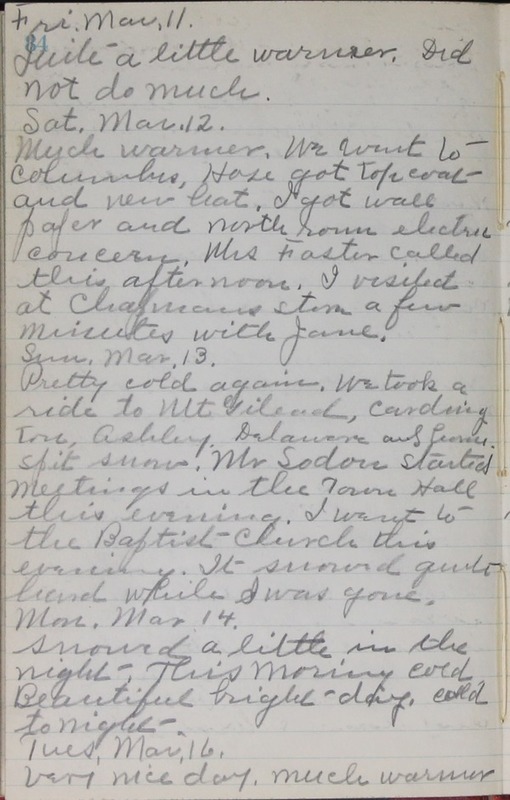 Fri. Mar. 11.
84
Quite a little warmer. Did
not do much.
Sat. Mar. 12.
Much warmer. We went to
Columbus, Hose got Topcoat
and new hat. I got wall
paper and north room electric
concern. Mrs Foster called
this afternoon. I visited
at Chapmans store a few
minutes with Jane.
Sun. Mar. 13.
Pretty cold again. We took a
ride to Mt Gilead, Carding
Ton, Ashley, Delaware and home.
spit snow. Mr Sodon started
meetings in the Town Hall
this evening. I went to
the Baptist Church this
evening. It snowed quite
hard while I was gone.
Mon. Mar 14.
Snowed a little in the
night. This morning cold
Beautiful bright day. cold
tonight.
Tues, Mar, 16.
Very nice day. much warmer